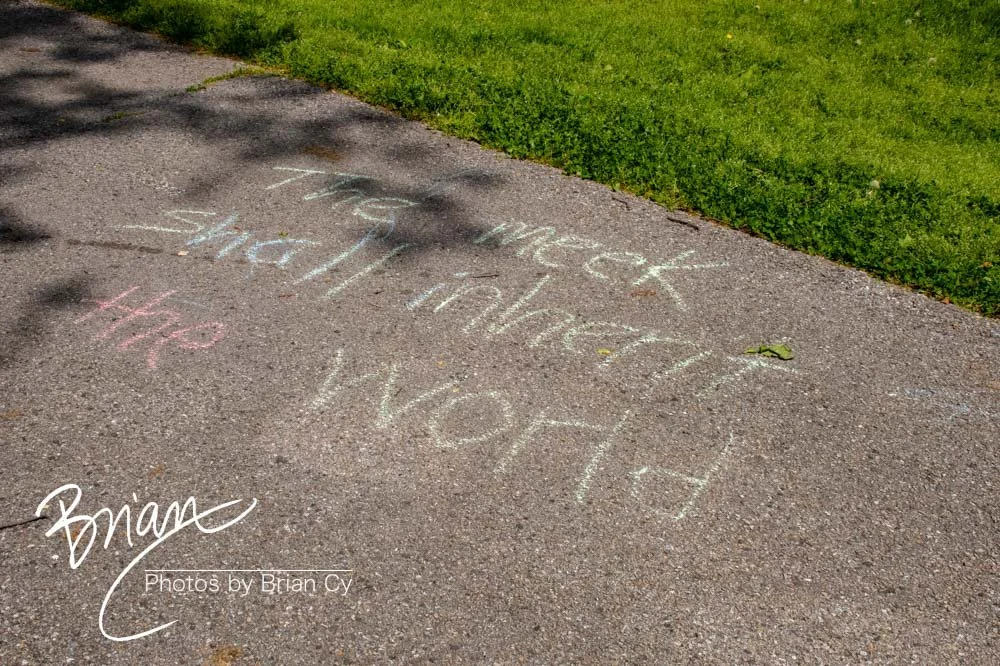 The meek
Shall inherit
The
World
Brian
Photos by Brian Cy